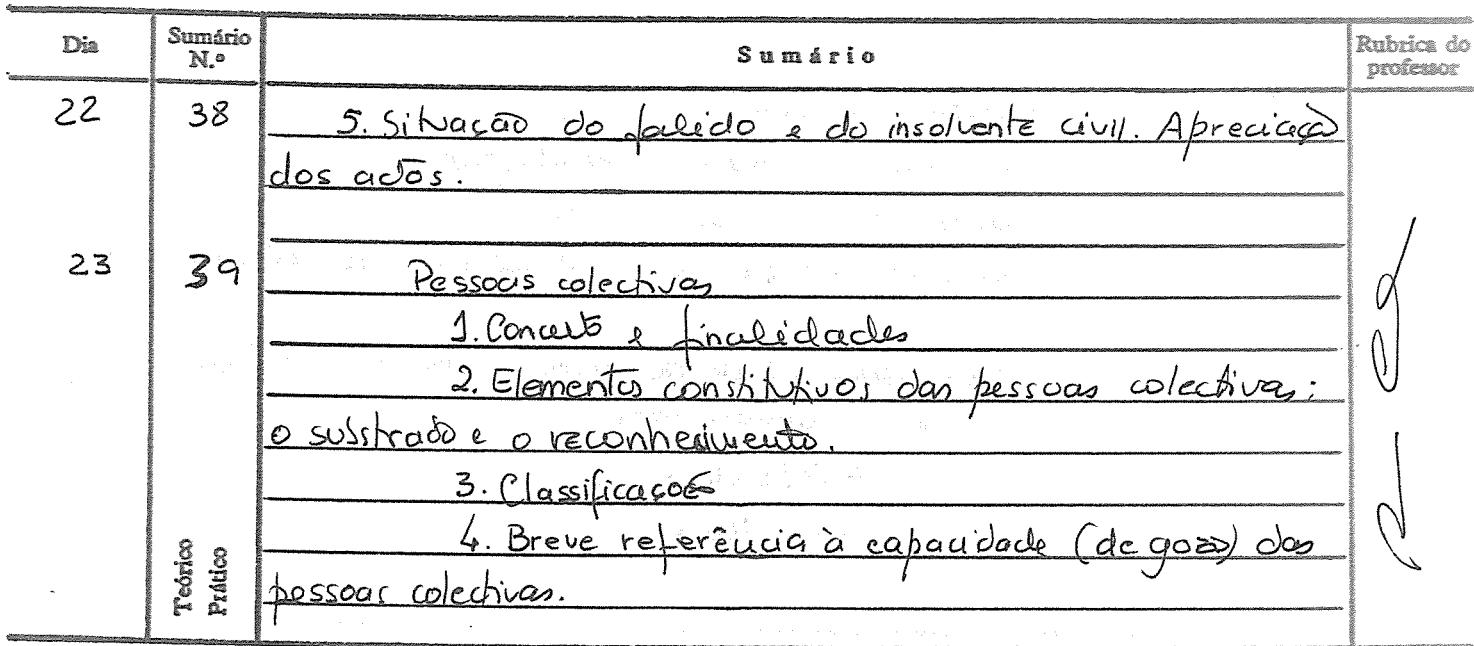 Dia Sumário N.º Sumário Rubrica do professor
22 38 5. Situação do falido e do insolvente civil. Apreciação
dos actos.
23 39 Pessoas colectivas
1. Conceito e finalidades
2. Elementos constitutivos das pessoas colectivas:
o substrado e o reconhecimento.
3. Classificações
4. Breve referência à capacidade (de gozo) das
pessoas colectivas.
Teórico
Prático